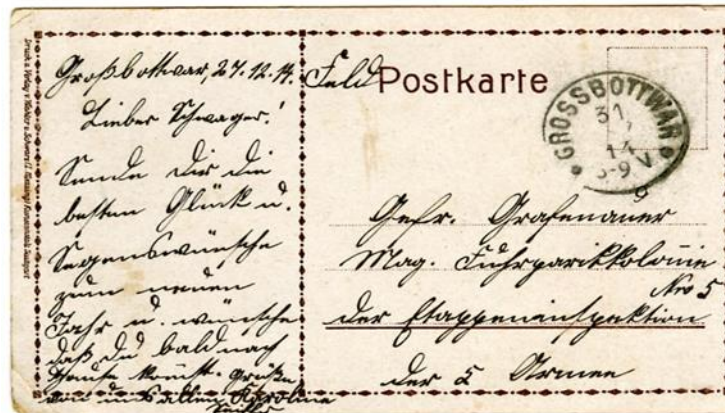 Großbottwar, 27.12.14.
Lieber Schwager!
Sende Dir die
besten Glück u.
Segenswünsche
zum neuen
Jahr u. wünsche
daß du bald nach
Hause kommst. Grüße
von uns allen Karoline
Feld Postkarte
GROSSBOTTWAR
31
14
8-9 V
Gefr. Grafenauer
Mag. Fuhrparkkolonie
Nro 5
der Etappeninspektion
der 5 Armee